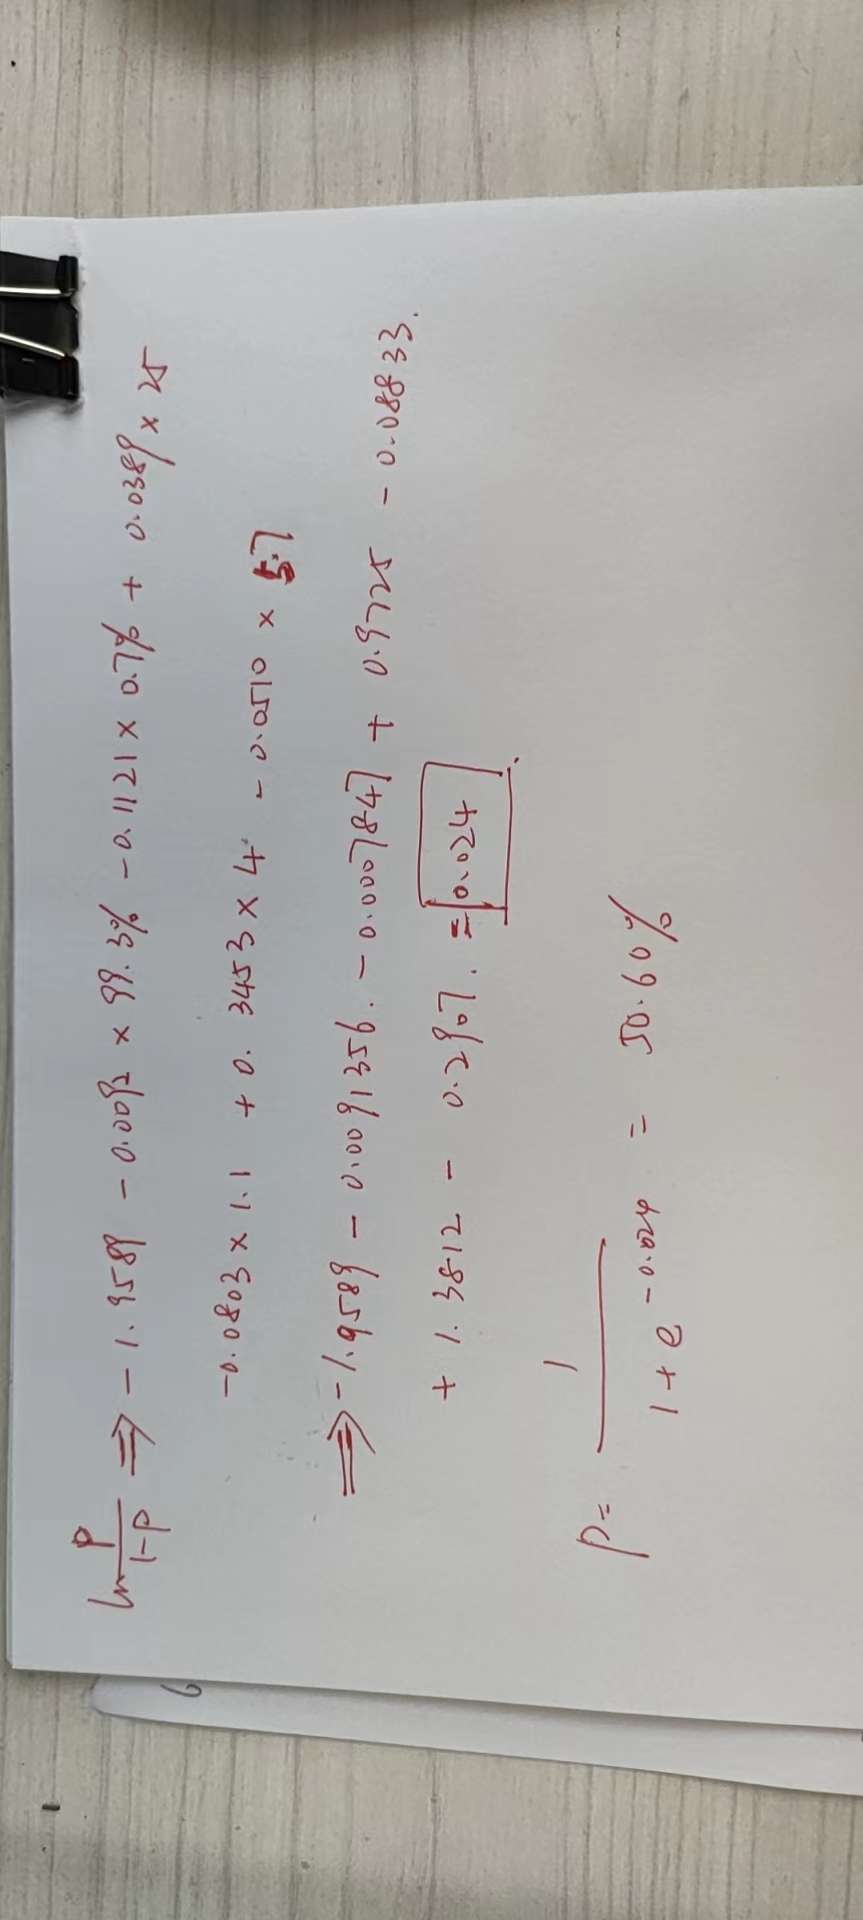 ln p/(1-p) ⇒ -1.9589 - 0.0092 × 99.3% - 0.1121 × 0.7% + 0.0389 × 25
-0.0803 × 1.1 + 0.3453 × 4 - 0.0510 × 5.7
⇒ -1.9589 - 0.0091356. - 0.0007847 + 0.9725 - 0.08833.
+ 1.3812 - 0.2907. = 0.024.
p = 1/(1 + e^-0.024) = 50.60%
6